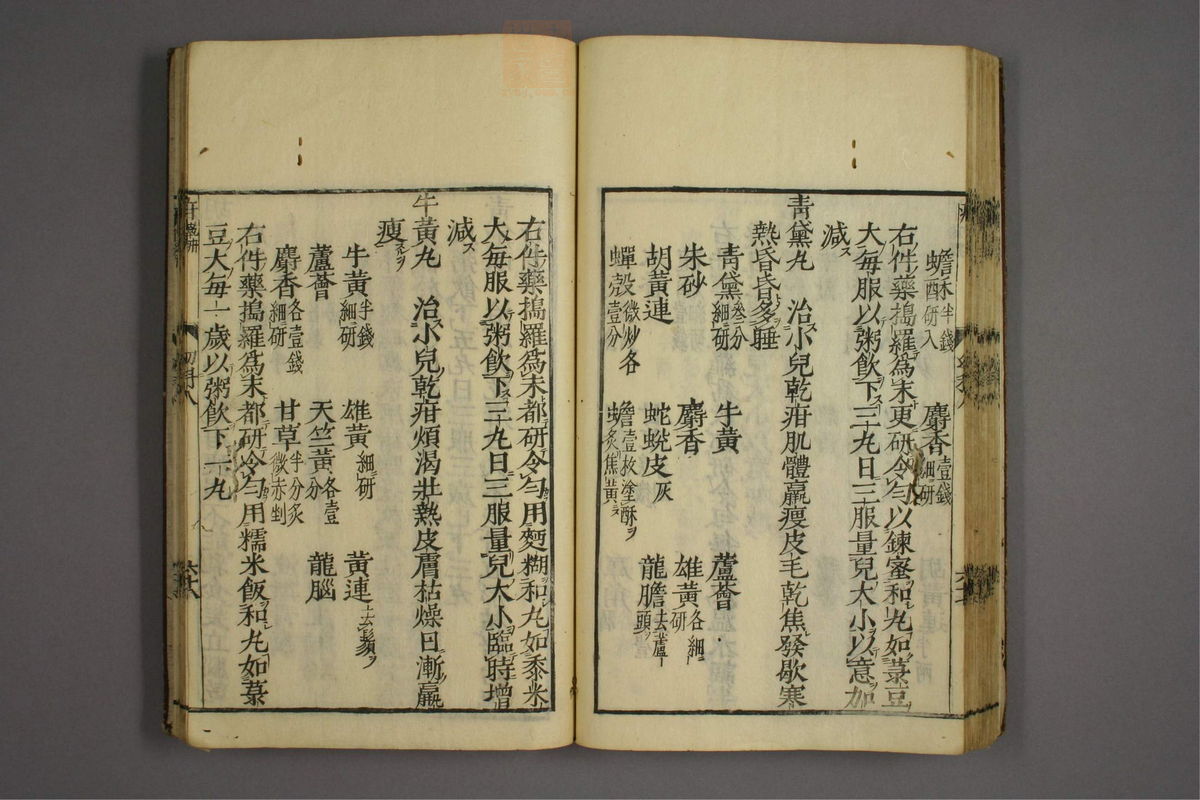 蟾酥半錢研入 麝香壹錢細研
右件藥搗羅爲末更研令勻以鍊蜜和丸如菉豆
大每服以粥飲下三丸日三服量兒大小以意加
減ス
青黛丸 治小兒乾疳肌體羸瘦皮毛乾焦發歇寒
熱昏昏多睡
青黛叁分細研 牛黃 蘆薈
朱砂 麝香 雄黃各細研
胡黃連 蛇蛻皮灰 龍膽去蘆頭
蟬殼微炒各壹分 蟾壹枚塗酥ヲ炙焦黃
右件藥搗羅爲末都研令勻用麵糊和丸如黍米
大每服以粥飲下三丸日三服量兒大小臨時增
減ス
牛黃丸 治小兒乾疳煩渴壯熱皮膚枯燥日漸羸
瘦
牛黃半錢細研 雄黃細研 黃連去鬚ヲ
蘆薈 天竺黃各壹分 龍腦
麝香各壹錢細研 甘草半分炙微赤剉
右件藥搗羅爲末都研令勻用糯米飯和丸如菉
豆大每一歲以粥飲下一丸